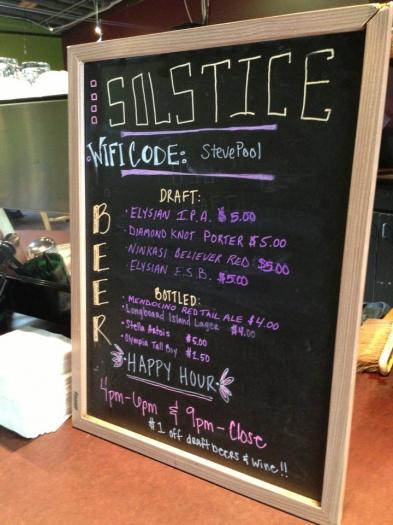 SOLSTICE
WIFI CODE: StevePool
BEER
DRAFT:
· ELYSIAN I.P.A. $5.00
· DIAMOND KNOT PORTER $5.00
· NINKASI BELIEVER RED: $5.00
· ELYSIAN E.S.B. $5.00
BOTTLED:
· MENDOCINO RED TAIL ALE $4.00
· Longboard Island Lager $4.00
· Stella Artois $5.00
· Olympia Tall Boy $1.50
HAPPY HOUR
4pm-6pm & 9pm-Close
$1 off draft beers & wine!!